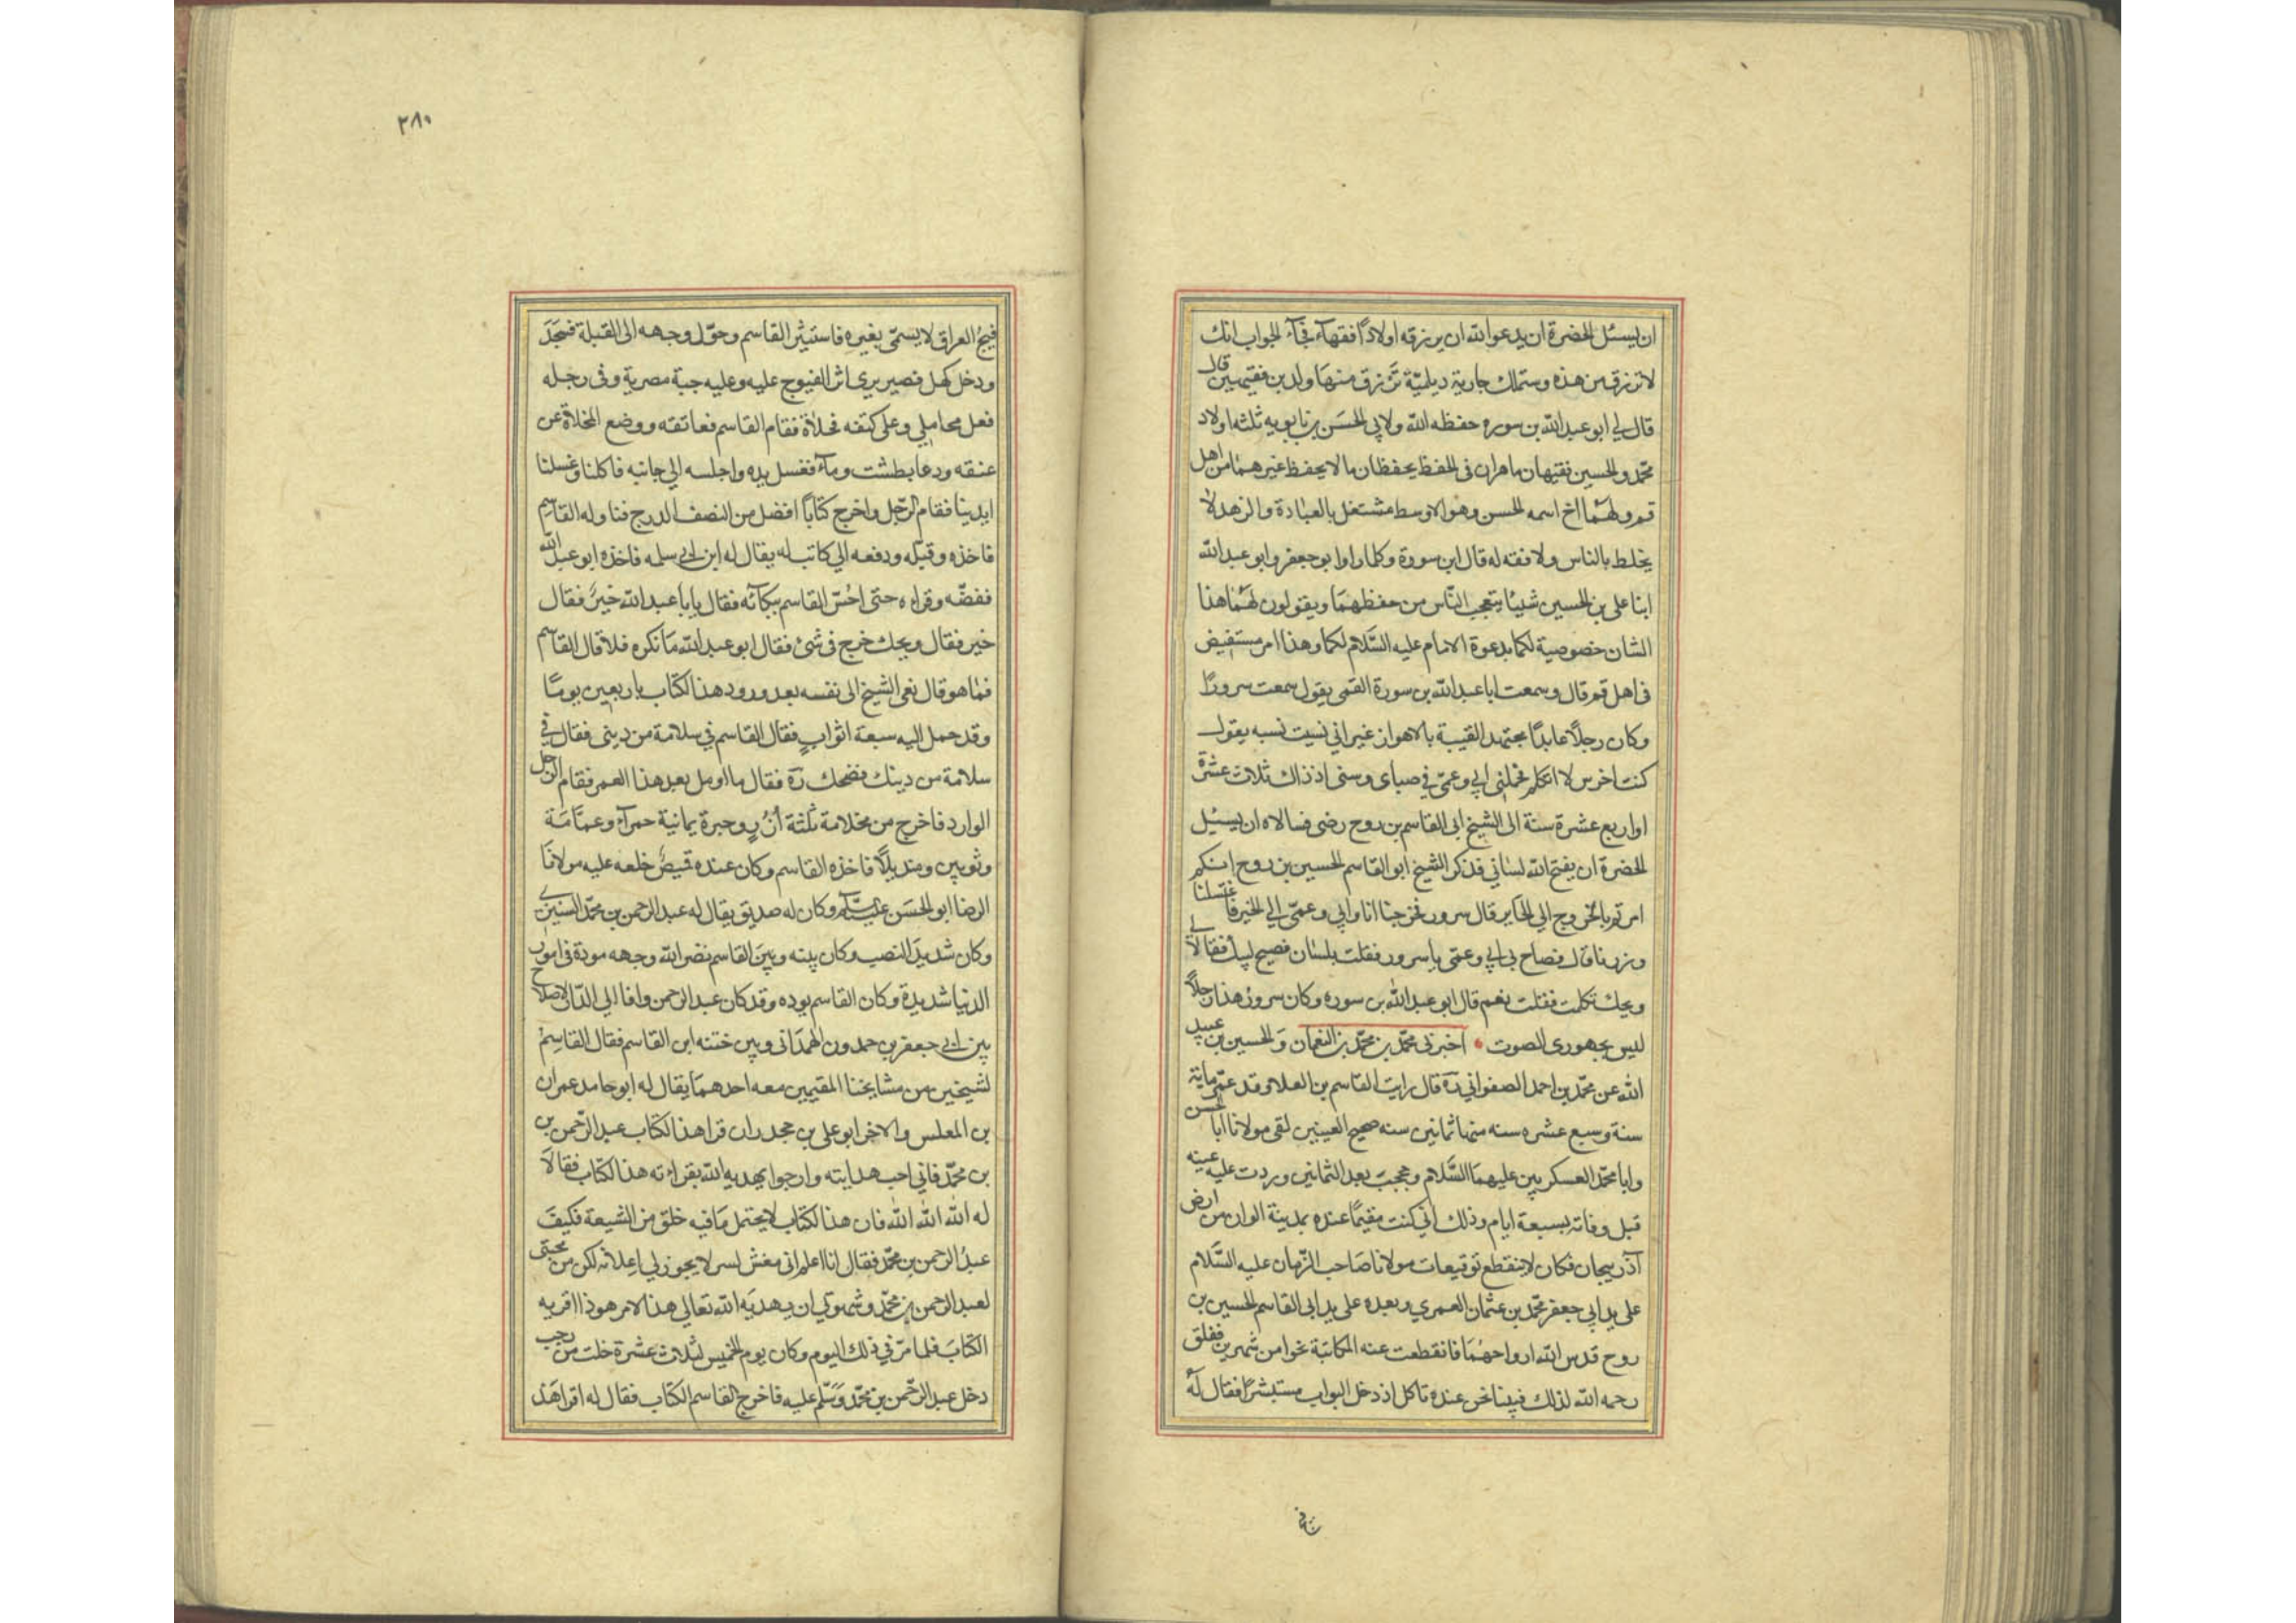 ان يسئل الحضرة ان يدعوا الله ان يرزقه اولادًا فقهآء فجآء الجواب انك
لا ترزق من هذه وستملك جارية ديلمية ترزق منها ولدين فقيهين قال
قال لي ابو عبد الله بن سوره حفظه الله ولابي الحسن بن بابويه ثلثه اولاد
محمد والحسين فقيهان ماهران في الحفظ يحفظان ما لا يحفظ غيرهما من اهل
قم ولهما اخ اسمه الحسن وهو الاوسط مشتغل بالعبادة والزهد لا
يختلط بالناس ولا فقه له قال ابن سورة وكلما راوا ابو جعفر وابو عبد الله
ابنا علي بن الحسين شيئا يتعجب الناس من حفظهما ويقولون لهما هذا
الشان خصوصية لكما بدعوة الامام عليه السلام لكما وهذا امر مستفيض
في اهل قم قال وسمعت ابا عبد الله بن سورة القمي يقول سمعت سرورًا
وكان رجلًا عابدًا مجتهد القيبة بالاهواز غير اني نسيت نسبه يقول
كنت اخرس لا اتكلم فحملني ابي وعمي في صباي وسني اذ ذاك ثلاث عشرة
او اربع عشرة سنة الى الشيخ ابي القاسم بن روح رضي فسالاه ان يسئل
الحضرة ان يفتح الله لساني فذكر الشيخ ابو القاسم الحسين بن روح انكم
امرتم بالخروج الي الحاير قال سرور فخرجنا انا وابي وعمي الي الخير فاغتسلنا
وزرنا قال فصاح بي ابي وعمي يا سرور فقلت بلسان فصيح لبيك فقالا لي
ويحك تكلمت فقلت نعم قال ابو عبد الله بن سوره وكان سرور هذا رجلًا
ليس بجهوري الصوت اخبرني محمد بن محمد بن النعمان والحسين بن عبيد
الله عن محمد بن احمد الصفواني ره قال رايت القاسم بن العلا وقد عمّر ماية
سنة وسبع عشره سنه منها ثمانين سنه صحيح العينين لقي مولانا ابا الحسن
وابا محمد العسكريين عليهما السلام وحجب بعد الثمانين وردت عليه عينه
قبل وفاته بسبعة ايام وذلك اني كنت مقيمًا عنده بمدينة الوان من ارض
آذربيجان فكان لا ينقطع توقيعات مولانا صاحب الزمان عليه السلام
على يد ابي جعفر محمد بن عثمان العمري وبعده على يد ابي القاسم الحسين بن
روح قدس الله ارواحهما فانقطعت عنه المكاتبة نحوا من شهرين فقلق
رحمه الله لذلك فبينا نحن عنده ناكل اذ دخل البواب مستبشرًا فقال له
٢٨٠
فيج العراق لا يسمّى بغيره فاستبشر القاسم وحوّل وجهه الى القبلة فسجد
ودخل كهل قصير يري اثر الفيوج عليه وعليه جبة مصرية وفي رجله
نعل محاملي وعلى كتفه مخلاة فقام القاسم فعانقه ووضع المخلاة عن
عنقه ودعا بطشت ومآء فغسل يده واجلسه الي جانبه فاكلنا وغسلنا
ايدينا فقام الرجل واخرج كتابًا افضل من النصف الدرج فناوله القاسم
فاخذه وقبّله ودفعه الي كاتب له يقال له ابن ابي سلمه فاخذه ابو عبد الله
ففضّه وقراه حتى احسّ القاسم ببكآئه فقال يا با عبد الله خيرٌ فقال
خير فقال ويحك خرج في شئ فقال ابو عبد الله ما نكره فلا قال القاسم
فما هو قال نعى الشيخ الى نفسه بعد ورود هذا الكتاب باربعين يومًا
وقد حمل اليه سبعة اثوابٍ فقال القاسم في سلامة من ديني فقال في
سلامة من دينك فضحك ره فقال ما اومل بعد هذا العمر فقام الرجل
الوارد فاخرج من مخلامة ثلثة اُزُرٍ وحبرة يمانية حمرآء وعمامة
وثوبين ومنديلًا فاخذه القاسم وكان عنده قميصٌ خلعه عليه مولانا
الرضا ابو الحسن عليه السلام وكان له صديق يقال له عبد الرحمن بن محمد السنيزي
وكان شديد النصب وكان بينه وبين القاسم نضر الله وجهه مودة في امور
الدنيا شديدة وكان القاسم يوده وقد كان عبد الرحمن وافا الي الدّار لاصلاح
بين ابي جعفر بن حمدون الهمداني وبين ختنه ابن القاسم فقال القاسم
لشيخين من مشايخنا المقيمين معه احدهما يقال له ابو حامد عمران
بن المعلس والاخر ابو علي بن جحدر ان قرا هذا الكتاب عبد الرحمن بن
بن محمد فاني احب هدايته وارجوا يهديه الله بقراءته هذا الكتاب فقالا
له الله الله الله فان هذا الكتاب لا يحتمل ما فيه خلق من الشيعة فكيف
عبد الرحمن بن محمد فقال انا اعلم اني مفش لسر لا يجوز لي اعلانه لكن من محبتي
لعبد الرحمن بن محمد وشهوتي ان يهديه الله تعالي هذا الامر هو ذا اقريه
الكتاب فلما مرّ في ذلك اليوم وكان يوم الخميس لثلاث عشرة خلت من رجب
دخل عبد الرحمن بن محمد وسلّم عليه فاخرج القاسم الكتاب فقال له اقرا هذ